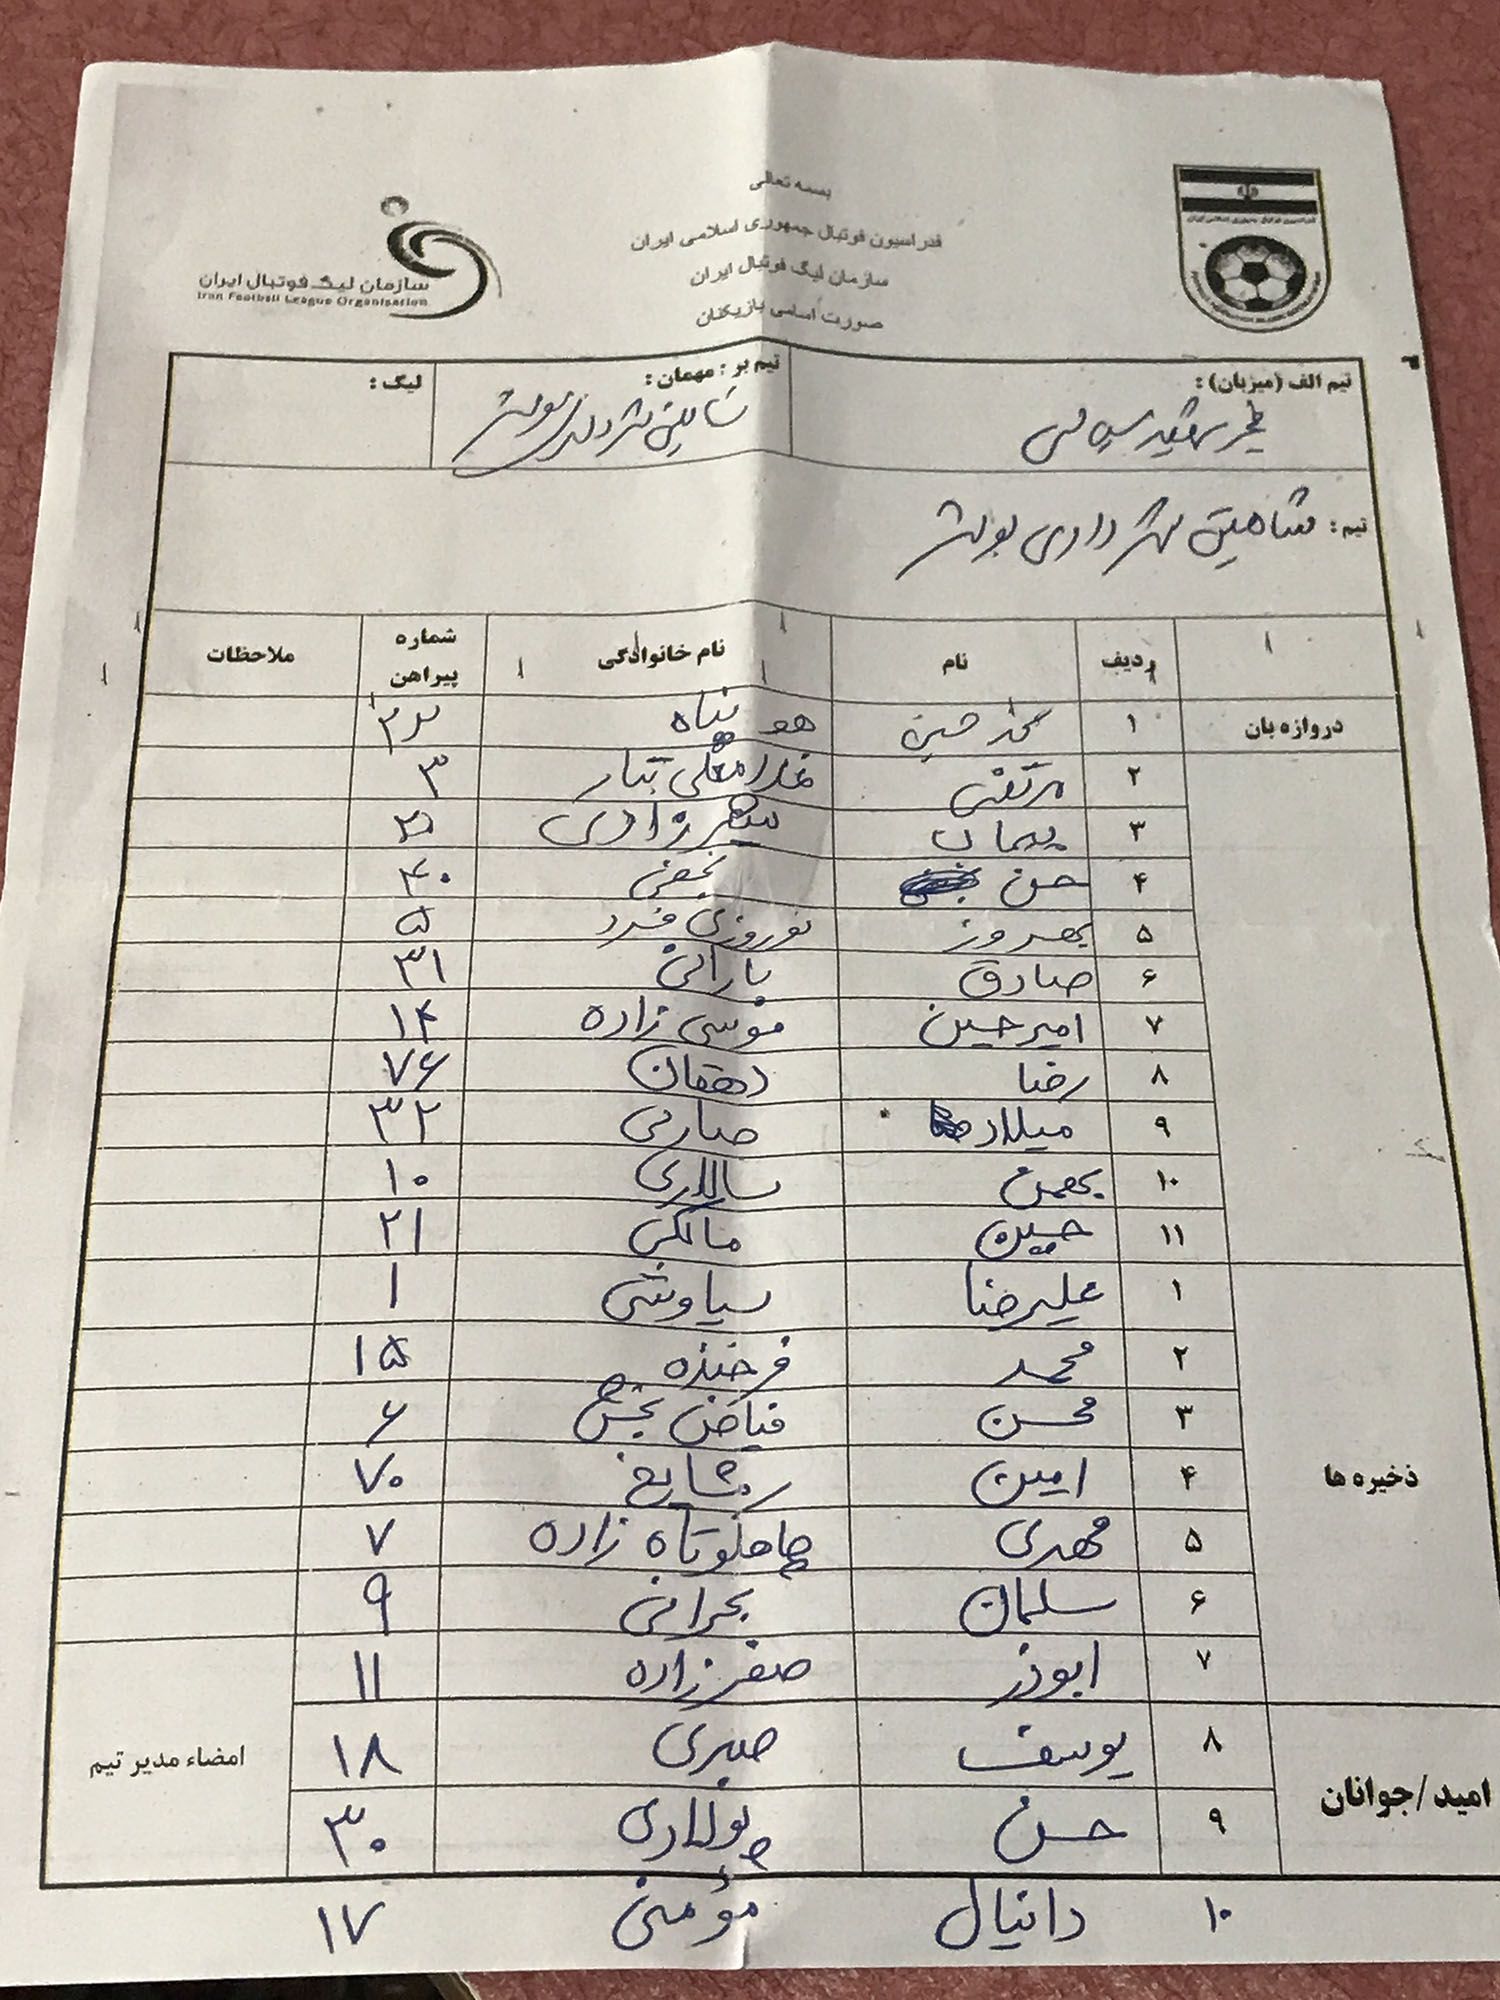 بسمه تعالی
فدراسیون فوتبال جمهوری اسلامی ایران
سازمان لیگ فوتبال ایران
صورت اسامی بازیکنان
سازمان لیگ فوتبال ایران
Iran Football League Organisation
تیم الف (میزبان) : فجر شهید سپاسی
تیم بر : مهمان : شاهین شهرداری بوشهر
لیگ :
تیم : شاهین شهرداری بوشهر
ردیف نام نام خانوادگی شماره پیراهن ملاحظات
دروازه بان ۱ محمد حسین
۲ مرتضی غلامعلی تبار ۳
۳ پیمان
۴ حسن نجفی ۴۰
۵ بهروز نوروزی فرد ۵
۶ صادق بارانی ۳۱
۷ امیرحسین موسی زاده ۱۴
۸ رضا دهقان ۷۶
۹ میلاد صارمی ۳۲
۱۰ بهمن سالاری ۱۰
۱۱ حسین مالکی ۲۱
ذخیره ها
۱ علیرضا سیاوشی ۱
۲ محمد فرخنده ۱۵
۳ محسن فیاض بخش ۶
۴ امین ۷۰
۵ مهدی چاهکوتاه زاده ۷
۶ سلمان بحرانی ۹
۷ ابوذر صفرزاده ۱۱
امید/جوانان
۸ یوسف صبری ۱۸
۹ حسن پولادی ۳۰
امضاء مدیر تیم
۱۰ دانیال مؤمنی ۱۷